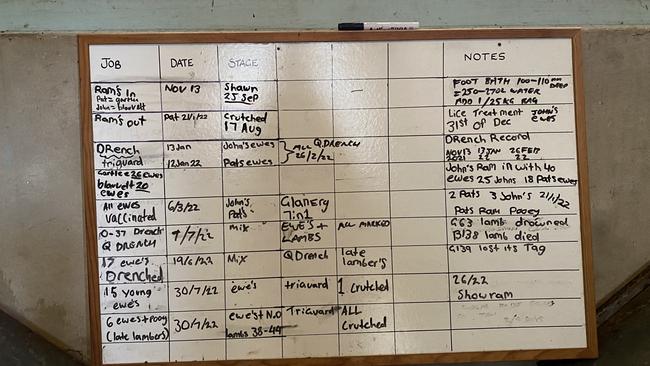 JOB DATE STAGE NOTES
Ram's In NOV 13 Shawn
Pat = garlie 25 Sep
John = blauvelt
FOOT BATH 100-110mm DEEP
=250-270L WATER
ADD 1/25KG BAG
Ram's out Pat 21/1/22 Crutched
17 Aug
Lice Treatment JOHN'S
31st OF Dec ewes
DRench 13 Jan John's ewes ALL Q DRENCH
triguard 12 Jan 22 Pats ewes 26/2/22
Drench Record
NOV 13 17 JAN 26 FEB
2021 22 22
26 ewes
blauvelt 20
ewes
John's Ram in with 40
ewes 25 Johns 18 Pats ewes
All ewes 6/3/22 John's Glanery
vaccinated Pat's 7 in 1
2 Pats 3 John's 21/1/22
Pats Ram Pooey
0-37 Drench 9/7/22 mix EWE'S + ALL MARKED
Q DRENCH LAMBS
G63 lamb drowned
B138 lamb died
17 ewe's 19/6/22 Mix Q Drench late
Drenched lamber's
G139 lost its Tag
15 young 30/7/22 ewe's triguard 1 Crutched
ewe's
26/22
Showram
6 ewes + pooy 30/7/22 ewe's + N.O Triguard ALL
(late lambers) lambs 38-44 Crutched